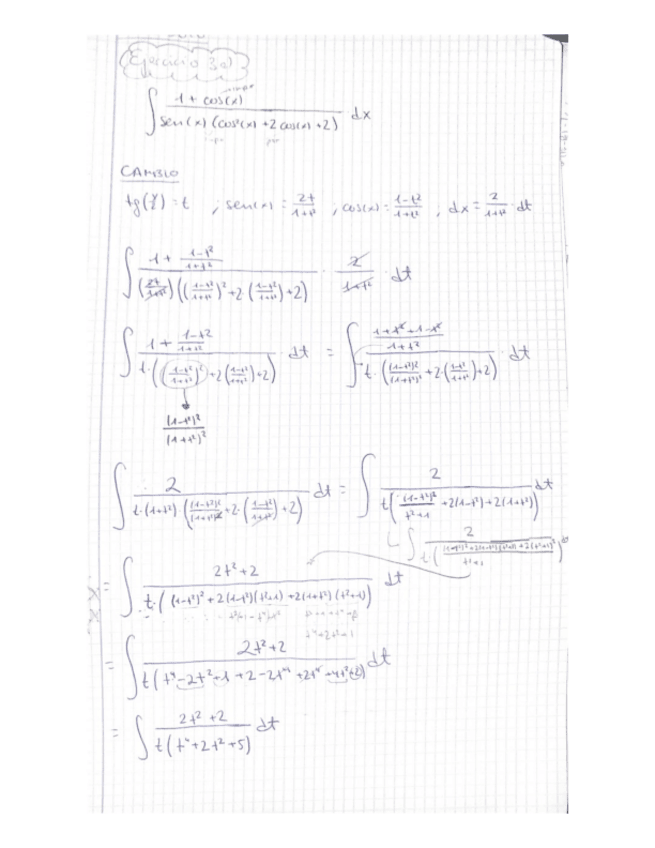 Ejercicio 3a)
∫ (1 + cos(x)) / (sen(x) (cos²(x) + 2 cos(x) + 2)) dx
CAMBIO
tg(x/2) = t , sen(x) = 2t/(1+t²) , cos(x) = (1-t²)/(1+t²) , dx = 2/(1+t²) dt
∫ (1 + (1-t²)/(1+t²)) / ((2t/(1+t²)) (((1-t²)/(1+t²))² + 2 ((1-t²)/(1+t²)) + 2)) · 2/(1+t²) dt
∫ (1 + (1-t²)/(1+t²)) / (t · (((1-t²)/(1+t²))² + 2 ((1-t²)/(1+t²)) + 2)) dt = ∫ ((1+t²+1-t²)/(1+t²)) / (t · ((1-t²)²/(1+t²)² + 2 · ((1-t²)/(1+t²)) + 2)) dt
(1-t²)²/(1+t²)²
∫ 2 / (t · (1+t²) · ((1-t²)²/(1+t²)² + 2 · ((1-t²)/(1+t²)) + 2)) dt = ∫ 2 / (t ((1-t²)²/(t²+1) + 2(1-t²) + 2(1+t²))) dt
= ∫ (2t²+2) / (t · ((1-t²)² + 2(1-t²)(t²+1) + 2(1+t²)(t²+1))) dt
t⁴+2t²+1
= ∫ (2t²+2) / (t (t⁴ - 2t² + 1 + 2 - 2t⁴ + 2t⁴ + 4t² + 2)) dt
= ∫ (2t²+2) / (t (t⁴ + 2t² + 5)) dt